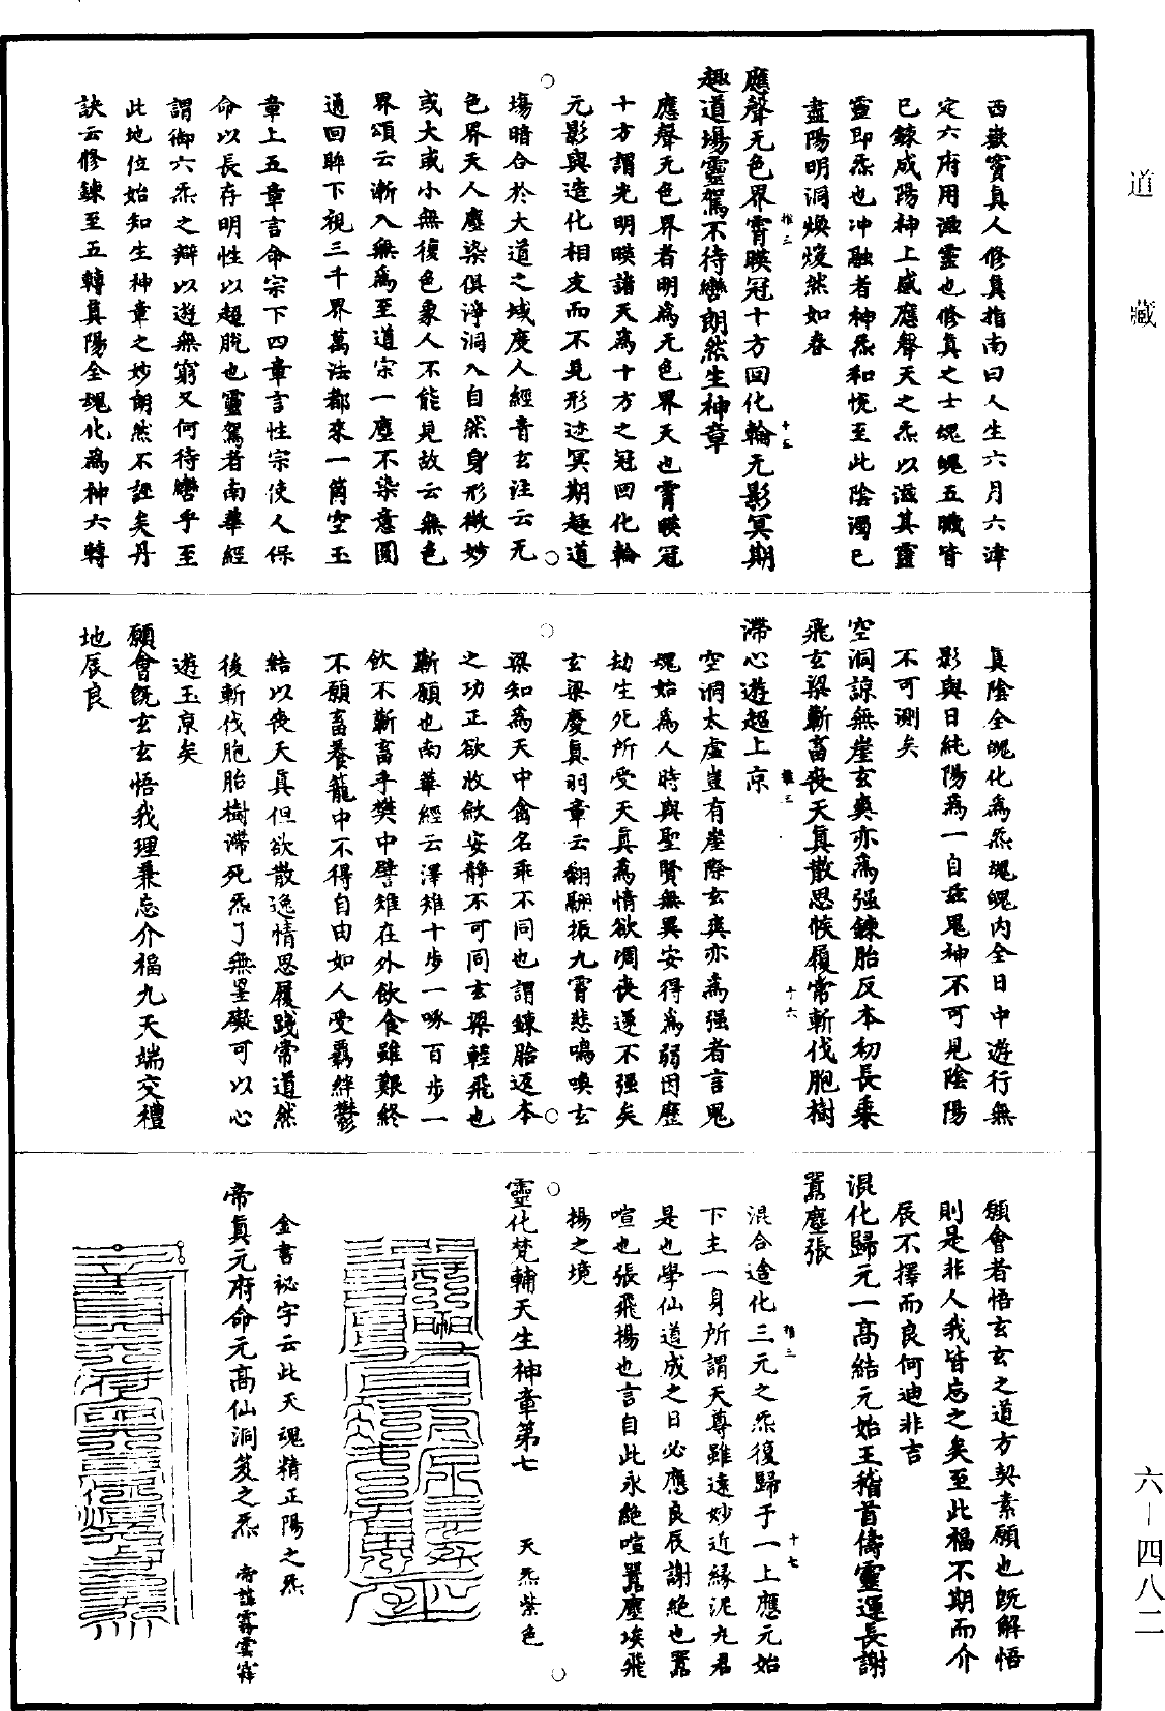 道藏
西嶽竇真人修真指南曰人生六月六津
定六府用滋靈也修真之士魂魄五臟皆
已鍊成陽神上感應聲天之炁以滋其靈
靈即炁也冲融者神炁和悅至此陰濁已
盡陽明洞煥煥然如春
應聲无色界霄暎冠十方回化輪无影冥期
趣道場靈駕不待轡朗然生神章
應聲无色界者明為无色界天也霄暎冠
十方謂光明暎諸天為十方之冠回化輪
元影與造化相友而不見形迹冥期趣道
塲暗合於大道之域度人經音玄注云无
色界天人塵染俱淨洞入自然身形微妙
或大或小無復色象人不能見故云無色
界頌云漸入無為至道宗一塵不染意圓
通回眸下視三千界萬法都來一箇空玉
章上五章言命宗下四章言性宗使人保
命以長存明性以超脫也靈駕者南華經
謂御六炁之辯以遊無窮又何待轡乎至
此地位始知生神章之妙朗然不誣矣丹
訣云修鍊至五轉真陽全魂化為神六轉
真陰全魄化為炁魂魄内全日中遊行無
影與日純陽為一自兹鬼神不可見陰陽
不可測矣
空洞諒無崖玄爽亦為强鍊胎反本初長乘
飛玄梁蘄畜喪天真散思候履常斬伐胞樹
滯心遊超上京
空洞太虛豈有崖際玄爽亦為强者言鬼
魂始為人時與聖賢無異安得為弱因歷
劫生死所受天真為情欲凋喪遂不强矣
玄梁慶真羽章云翻翮振九霄悲鳴喚玄
梁知為天中禽名乖不同也謂鍊胎返本
之功正欲收斂安靜不可同玄梁輕飛也
蘄願也南華經云澤雉十步一啄百步一
飲不蘄畜乎樊中譬雉在外飲食雖艱終
不願畜養籠中不得自由如人受羈絆鬱
結以喪天真但欲散逸情思履踐常道然
後斬伐胞胎樹滯死炁了無罣礙可以心
遊玉京矣
願會既玄玄悟我理兼忘介福九天端交禮
地辰良
願會者悟玄玄之道方契素願也既解悟
則是非人我皆忘之矣至此福不期而介
辰不擇而良何迪非吉
混化歸元一高結元始王稽首儔靈運長謝
囂塵張
混合造化三元之炁復歸于一上應元始
下主一身所謂天尊雖遠妙近緣泥丸君
是也學仙道成之日必應良辰謝絶也囂
喧也張飛揚也言自此永絶喧囂塵埃飛
揚之境
靈化梵輔天生神章第七 天炁紫色
金書祕字云此天魂精正陽之炁
帝真元府命元高仙洞笈之炁
六—四八二